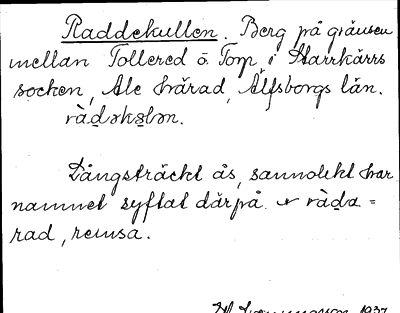 Raddekullen. Berg på gränsen
mellan Tollered o. Torp, i Starrkärrs
socken, Ale härad, Älfsborgs län.
ràdəkələn.
Långsträckt ås, sannolikt har
namnet syftat därpå. ràda =
rad, remsa.
1937